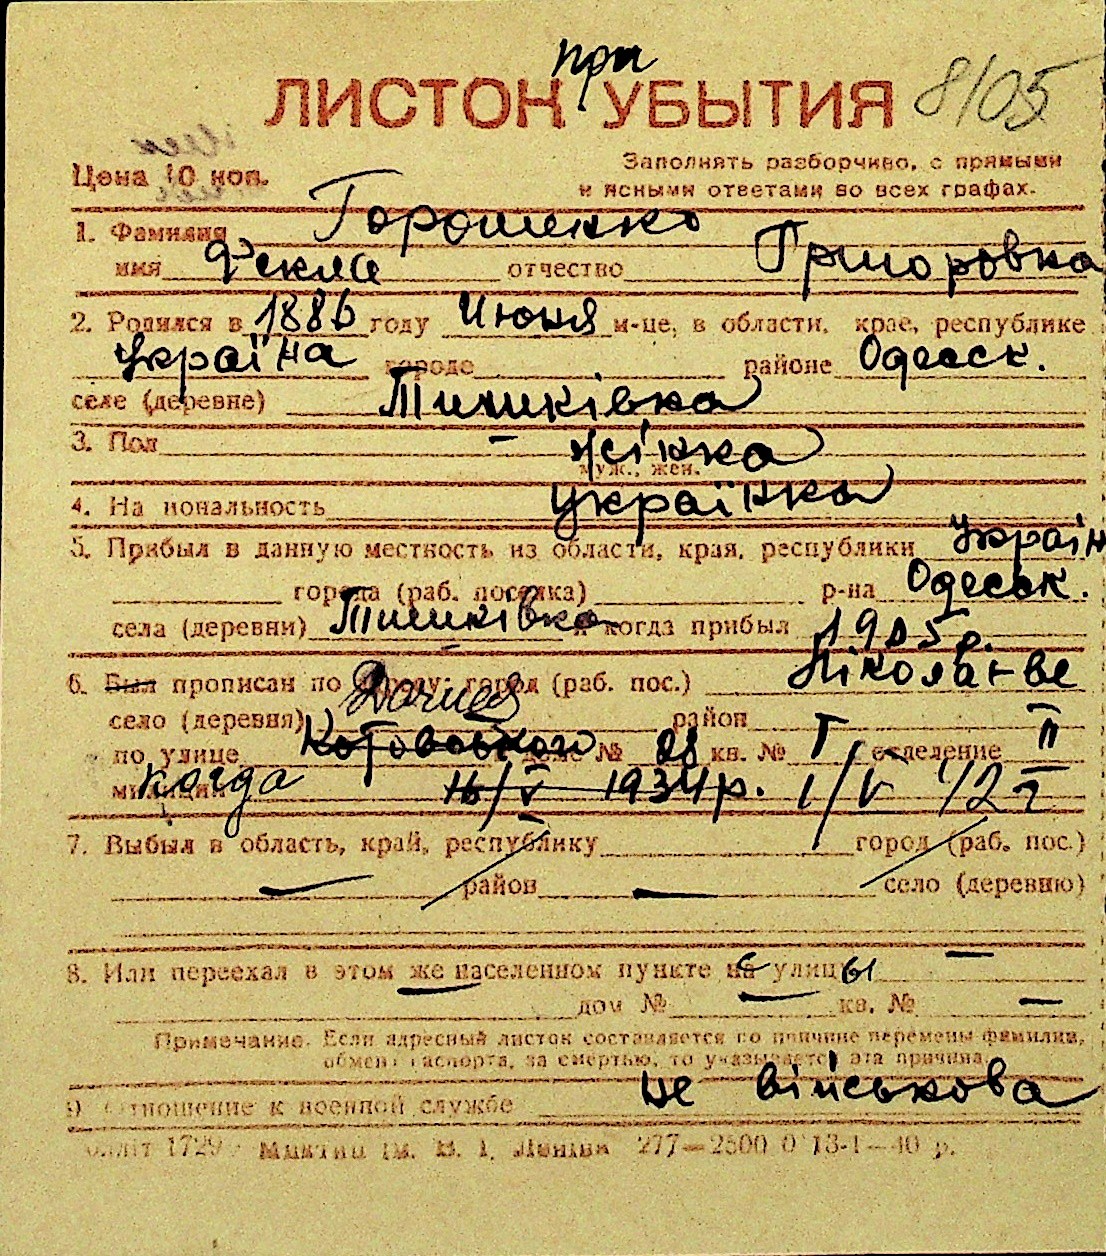 при
ЛИСТОК УБЫТИЯ 8/05
Цена 10 коп. Заполнять разборчиво, с прямыми
и ясными ответами во всех графах.
1. Фамилия Горошенко
имя Фекла отчество Григоровна
2. Родился в 1886 году Июня м-це, в области, крае, республике
Україна городе районе Одесск.
селе (деревне) Тишківка
3. Пол жінка
муж., жен.
4. На иональность українка
5. Прибыл в данную местность из области, края, республики Україн
города (раб. поселка) р-на Одеськ.
села (деревни) Тишківка и когда прибыл 1905 р.
6. Был прописан по городу: город (раб. пос.) Ніколаєве
село (деревня) район
по улице Котовського доме № 28 кв. № 1 отделение II
милиции когда 16/V 1934 р. 1/V
7. Выбыл в область, край, республику город (раб. пос.)
район село (деревню)
8. Или переехал в этом же населенном пункте на с улицы
дом № кв. №
Примечание. Если адресный листок составляется по причине перемены фамилии,
обмена паспорта, за смертью, то указывается эта причина.
9. Отношение к военной службе не військова
1729 Ленiна 277—2500 0 13-1—40 р.